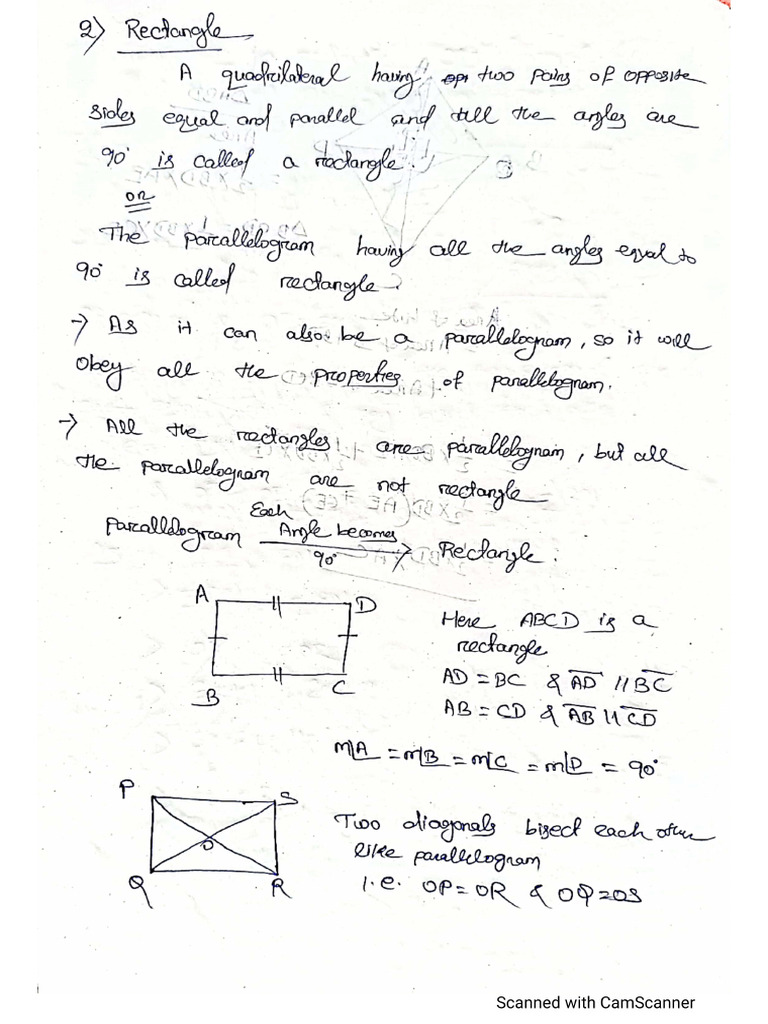 2) Rectangle
A quadrilateral having two pairs of opposite
sides equal and parallel and all the angles are
90° is called a rectangle.
or
The parallelogram having all the angles equal to
90° is called rectangle.
→ As it can also be a parallelogram, so it will
obey all the properties of parallelogram.
→ All the rectangles are parallelogram, but all
the parallelogram are not rectangle
Each
Parallelogram Angle becomes → Rectangle.
90°
A D
B C
Here ABCD is a
rectangle
AD = BC & AD // BC
AB = CD & AB // CD
m∠A = m∠B = m∠C = m∠D = 90°
P S
O
Q R
Two diagonals bisect each other
like parallelogram
i.e. OP = OR & OQ = OS
Scanned with CamScanner